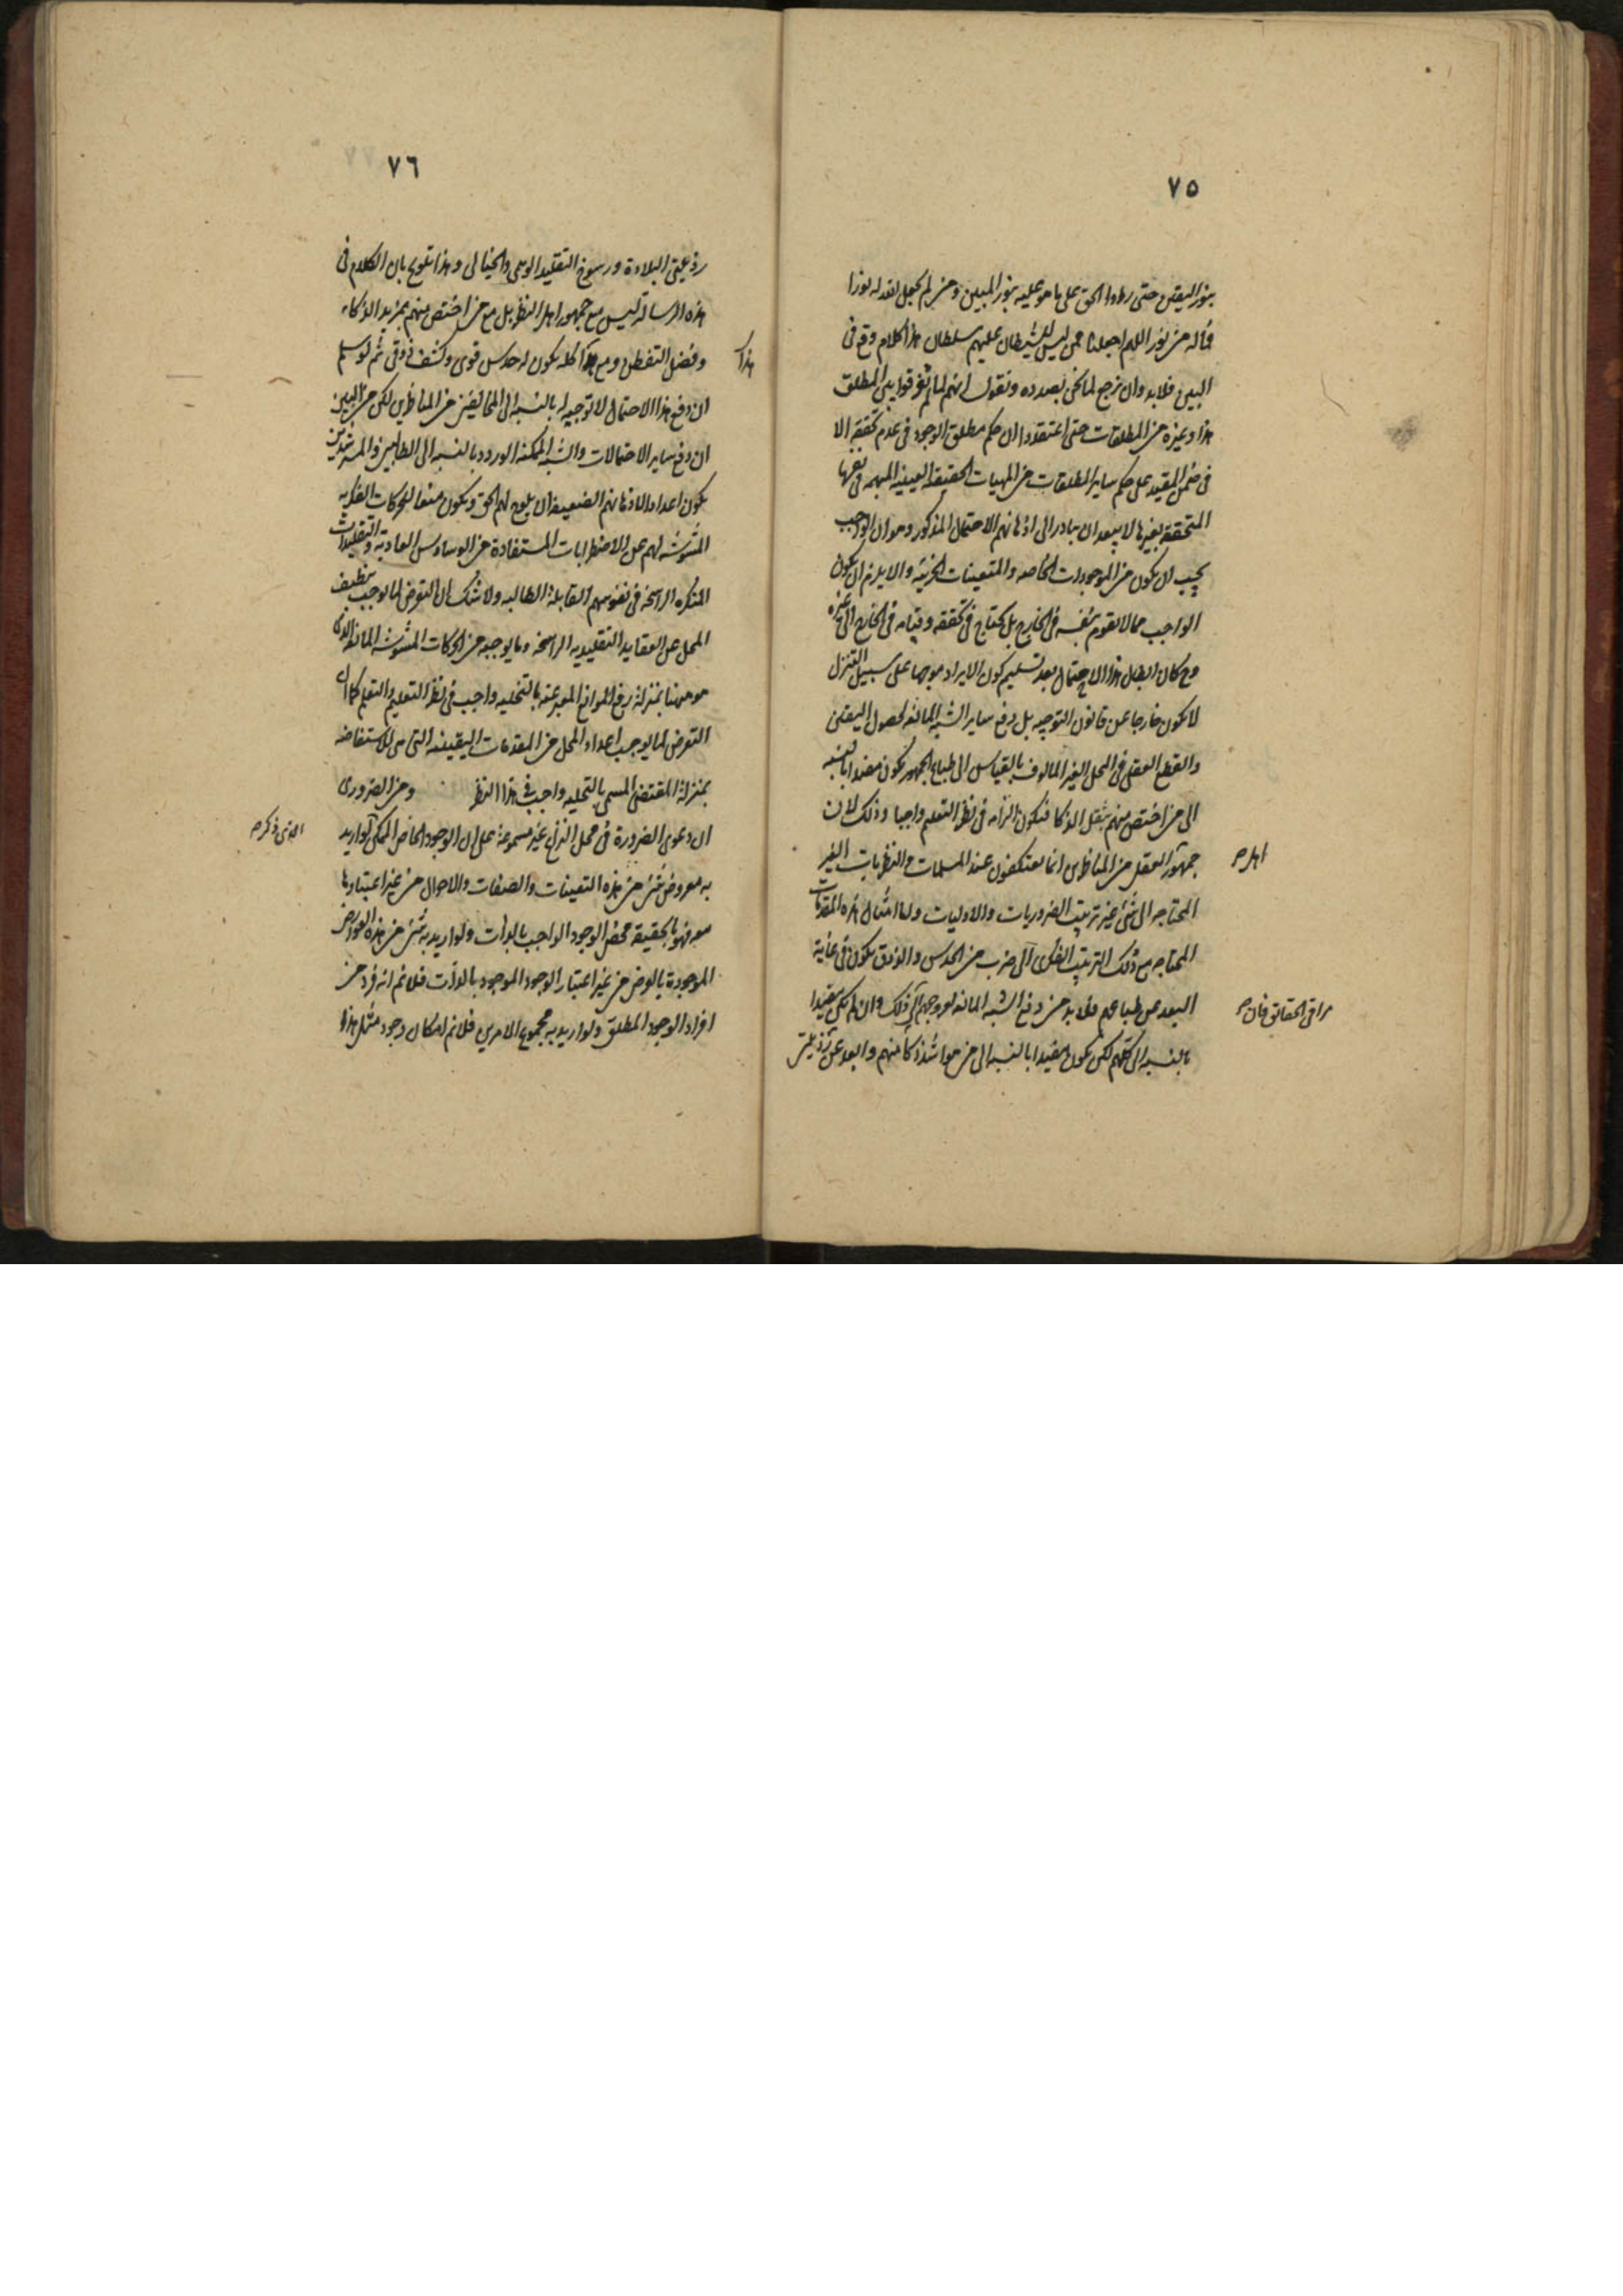 ٧٥
بنور اليقين حتى راوا الحق على ما هو عليه بنور المبين ومن لم يجعل الله له نورا
فما له من نور اللهم اجعلنا ممن ليس للشيطان عليهم سلطان هذا كلام وقع في
البين فلابد وان نرجع لما نحن بصدده ونقول انهم لما لم يفرقوا بين المطلق
هذا وغيره من المطلقات حتى اعتقدوا ان حكم مطلق الوجود في عدم تحققه الا
في ضمن المقيد على حكم ساير المطلقات من المهيات الحقيقة العينية المبهمه في نفسها
المتحققة بغيرها لا يبعد ان يبادر الى اذهانهم الاحتمال المذكور وهو ان الواجب
يجب ان يكون من الموجودات الخاصه والمتعينات الجزئية والا يلزم ان يكون
الواجب مما لا يقوم بنفسه في الخارج بل يحتاج في تحققه وقيامه في الخارج الى غيره
وح كان ابطال هذا الاحتمال بعد تسليم كون الايراد موجها على سبيل التنزل
لا يكون خارجا عن قانون التوجيه بل دفع ساير الشبه المانعه لحصول اليقين
والقطع العقلي في المحل الغير المالوف بالقياس الى طباع الجمهور يكون مفيدا بالنسبه
الى من اختص منهم بثقل الذكا فيكون الزامه في نظر التعليم واجبا وذلك لان
جمهور العقل من المناظرين انما يعتكفون عند المسلمات والنظريات الغير
اهل صح
المحتاجه الى شئ غير ترتيب الضروريات والاوليات واما امثال هذه المقدمات
المحتاجه مع ذلك الترتيب الفكرى الى ضرب من الحدس والذوق يكون في غاية
البعد عن طباعهم فلابد من دفع الشبه المانعه لعروجهم الى ذلك وان لم يكن مفيدا
مراقى الحقائق فان صح
بالنسبه الى كلهم لكن يكون مفيدا بالنسبه الى من هو اشد ذكا منهم وابعد عن رذيلتى
٧٦
رذيلتى البلادة ورسوخ التقليد الوهمى والخيالى وهذا تلويح بان الكلام في
هذه الرسالة ليس مع جمهور اهل النظر بل مع من اختص منهم بمزيد الذكاء
وفضل التفطن ومع هذا كله يكون له حدس قوى وكشف ذوقى ثم لو سلم
هذا
ان دفع هذا الاحتمال لا توجيه له بالنسبه الى المخالفين من المناظرين لكن من البين
ان دفع ساير الاحتمالات والشبه الممكنه الورود بالنسبه الى الطالبين والمسترشدين
يكون اعدادا لاذهانهم الضعيفه لان يلوح لهم الحق ويكون منعا للحركات الفكريه
المشوشه لهم عن الاضطرابات المستفادة من الوساوس العاديه والتقليدات
المنكره الراسخه في نفوسهم القابلة الطالبه ولا شك ان التعرض لما يوجب تنظيف
المحل عن العقايد التقليديه الراسخه وما يوجبه من الحركات المشوشه المانعه الذى
هو ههنا بمنزلة رفع الموانع المعبر عنه بالتخليه واجب في نظر التعليم والتعلم كما ان
التعرض لما يوجب اعداد المحل من المقدمات اليقينيه التى هى للاستفاضه
بمنزلة المقتضى المسمى بالتحليه واجب في هذا النظر ومن الضرورى
ان دعوى الضرورة في محل النزاع غير مسموعة على ان الوجود الخاص الممكن لو اريد
الذى ذكره صح
به معروض شئ من هذه التعينات والصفات والاحوال من غير اعتبارها
معه فهو بالحقيقة محض الوجود الواجب بالذات ولو اريد به شئ من هذه العوارض
الموجودة بالعرض من غير اعتبار الوجود الموجود بالذات فلا نم انه فرد من
افراد الوجود المطلق ولو اريد به مجموع الامرين فلا نم امكان وجود مثل هذا